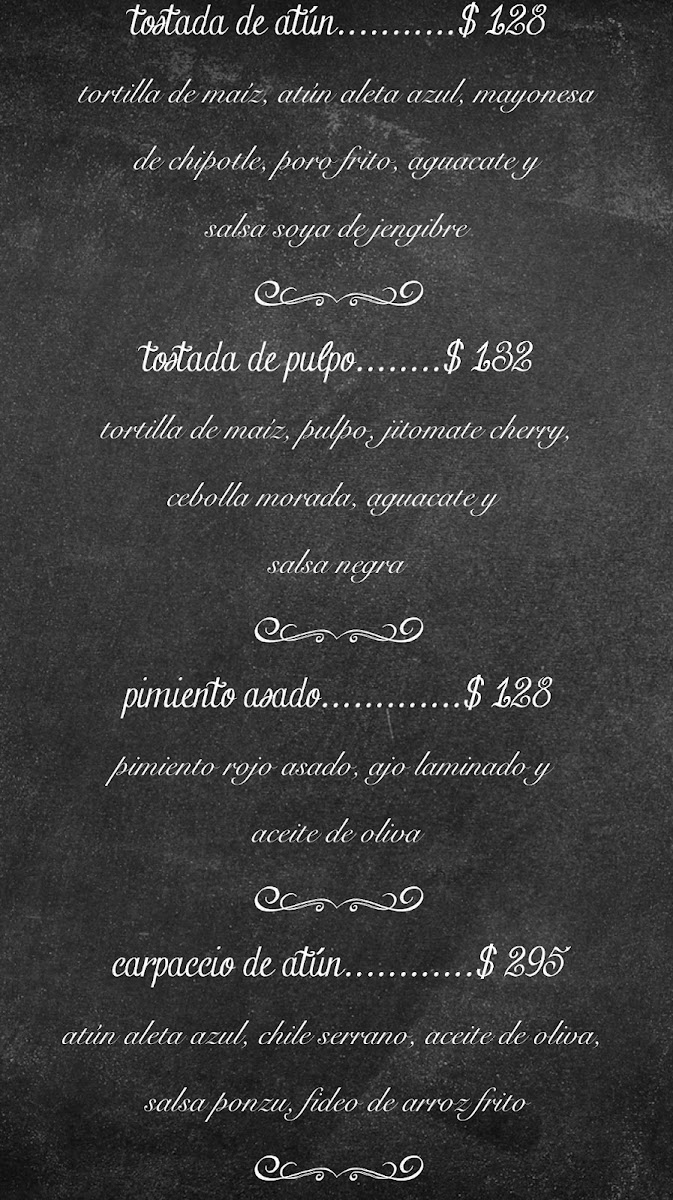 tostada de atún...........$ 128
tortilla de maíz, atún aleta azul, mayonesa
de chipotle, poro frito, aguacate y
salsa soya de jengibre
tostada de pulpo........$ 132
tortilla de maíz, pulpo, jitomate cherry,
cebolla morada, aguacate y
salsa negra
pimiento asado.............$ 128
pimiento rojo asado, ajo laminado y
aceite de oliva
carpaccio de atún............$ 295
atún aleta azul, chile serrano, aceite de oliva,
salsa ponzu, fideo de arroz frito